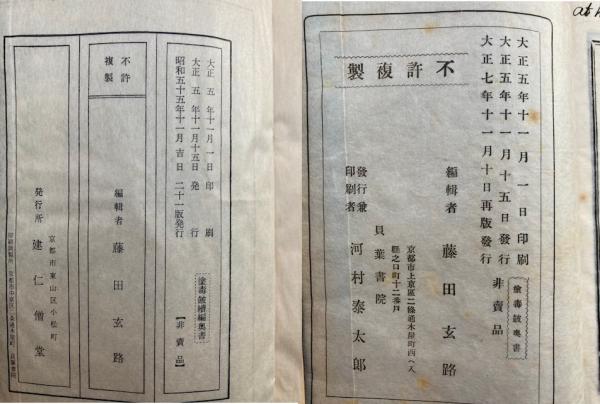 大正五年十一月一日印刷
大正五年十一月十五日発行
昭和五十五年十一月吉日二十一版発行
塗毒鼓續編奥書
【非売品】
不許
複製
編輯者 藤田玄路
京都市東山区小松町
発行所 建仁僧堂
大正五年十一月一日印刷
大正五年十一月十五日發行
大正七年十一月十日再版發行
塗毒鼓奥書
非賣品
不許複製
編輯者 藤田玄路
京都市上京區二條通木屋町西ヘ入
發行兼
印刷者
貝葉書院
河村泰太郎